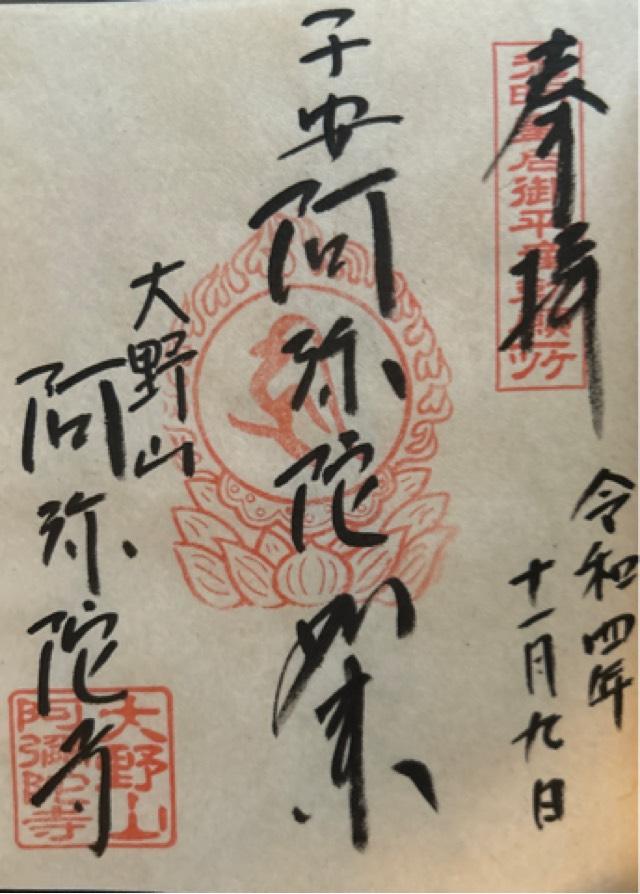 奉拝
皇后御平産
令和四年
十一月九日
子安阿弥陀如来
大野山
阿弥陀寺
大野山
阿彌陀寺